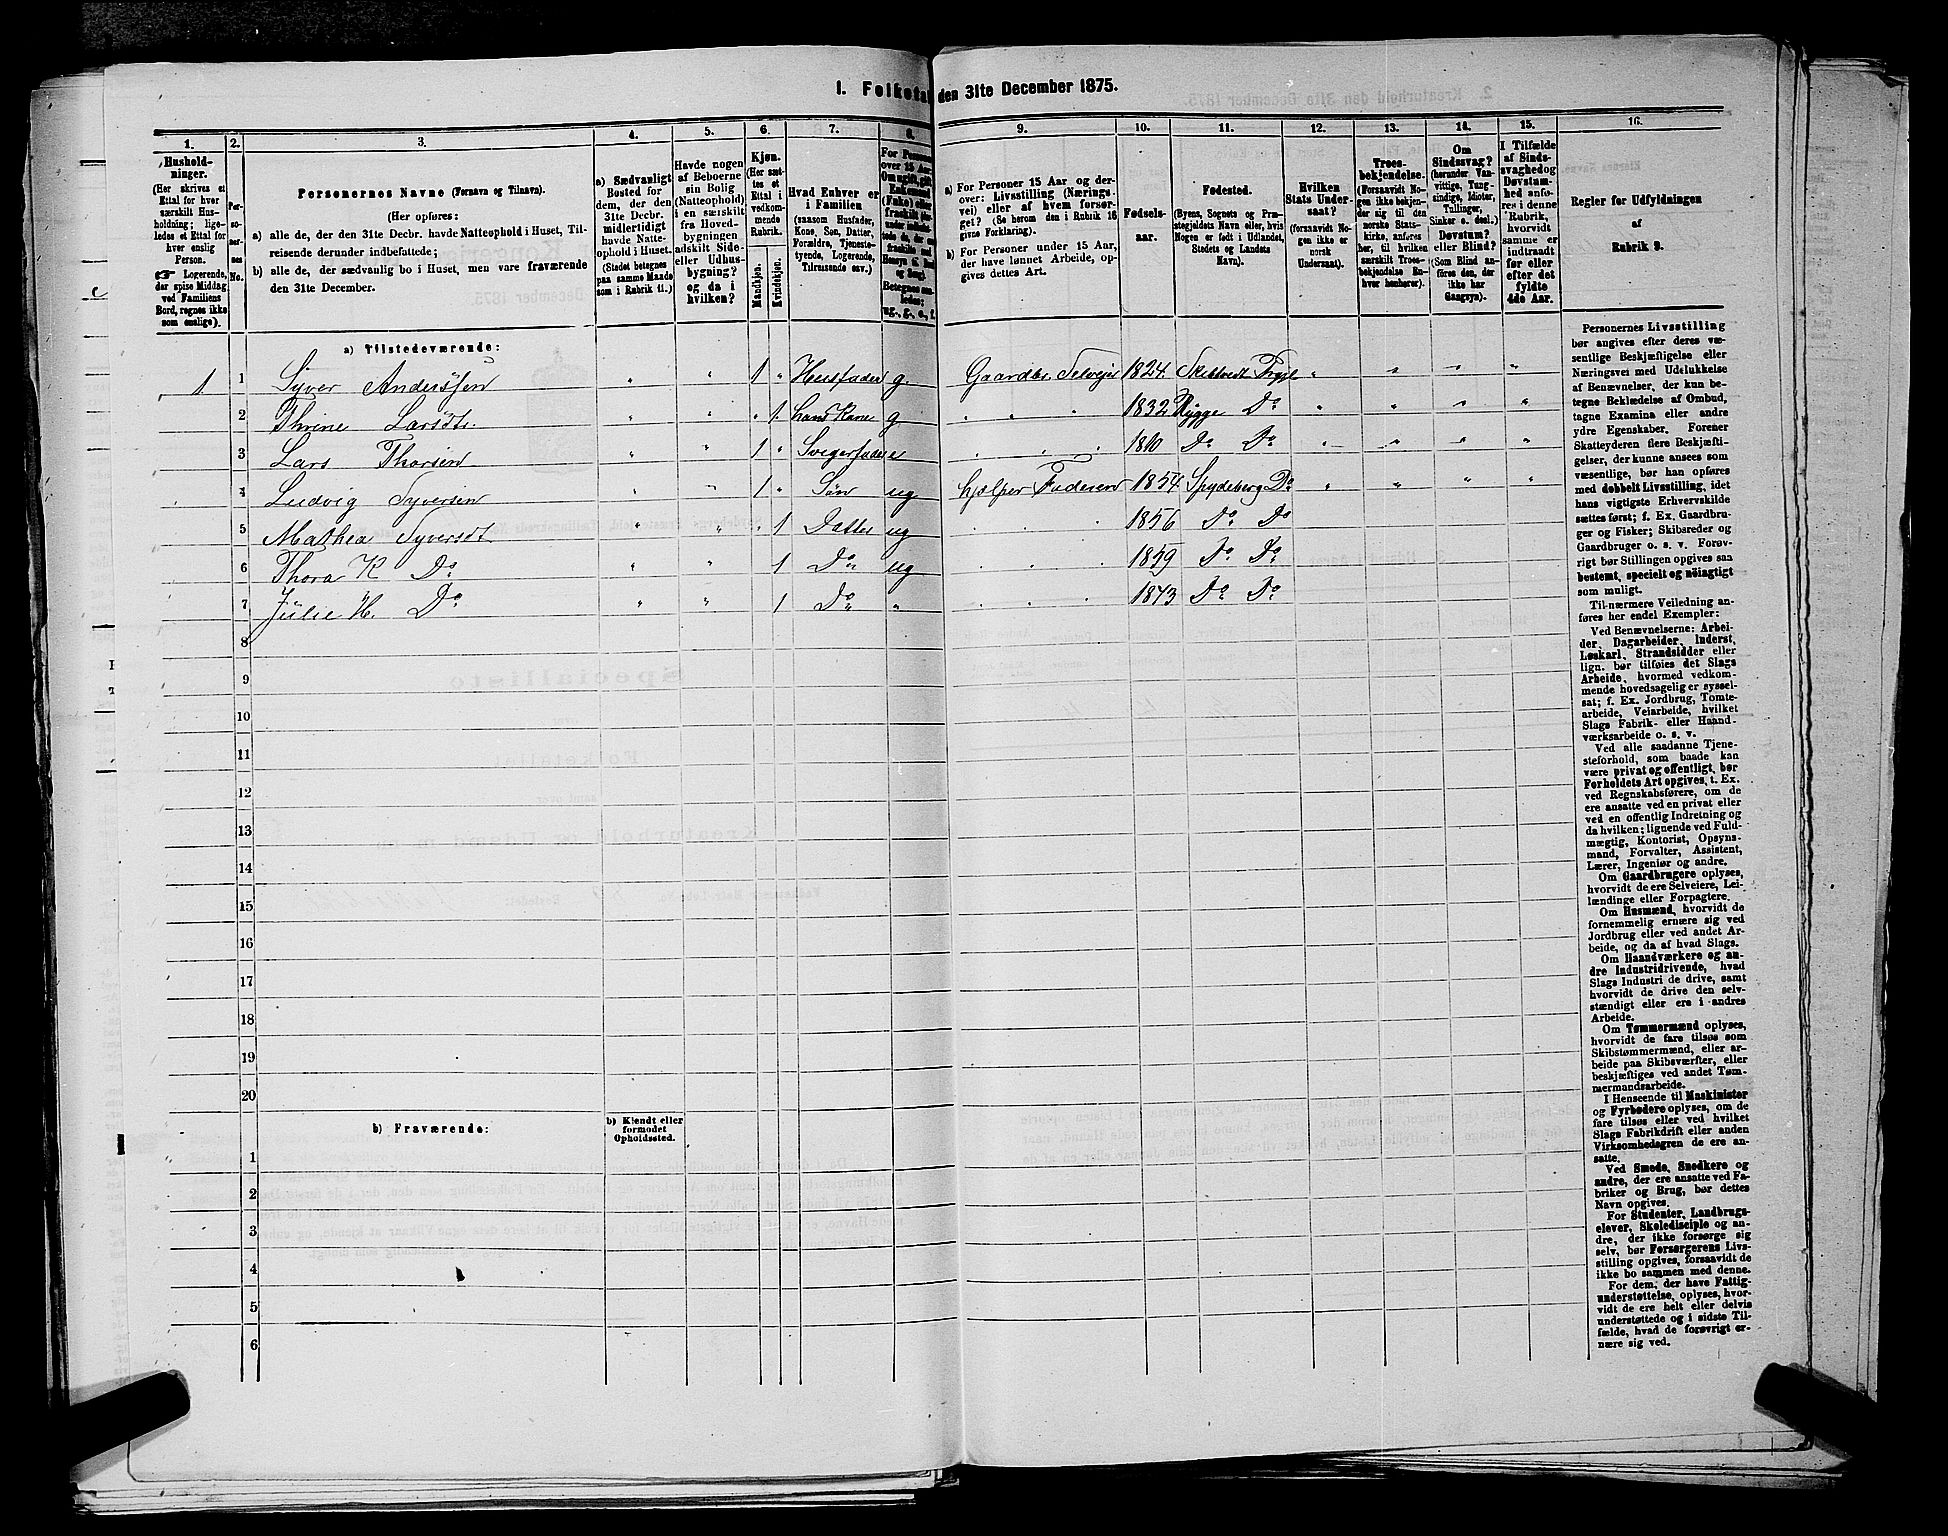 1. Folketal den 31te December 1875.
1. 2. 3. 4. 5. 6. 7. 8. 9. 10. 11. 12. 13. 14. 15. 16.
Hushold-
ninger.
(Her skrives et
Ettal for hver
særskilt Hus-
holdning; lige-
ledes et Ettal for
hver enslig
Person.
☞ Logerende,
der spise Middag
ved Familiens
Bord, regnes ikke
som enslige).
Per-
so-
ner-
nes
No.
Personernes Navne (Fornavn og Tilnavn).
(Her opføres:
a) alle de, der den 31te Decbr. havde Natteophold i Huset, Til-
reisende derunder indbefattede;
b) alle de, der sædvanlig bo i Huset, men vare fraværende
den 31te December.
a) Sædvanligt
Bosted for
dem, der den
31te Decbr.
midlertidigt
havde Natte-
ophold i Huset.
(Stedet betegnes
paa samme Maade
som i Rubrik 11.)
Havde nogen
af Beboerne
sin Bolig
(Natteophold)
i en særskilt
fra Hoved-
bygningen
adskilt Side-
eller Udhus-
bygning?
og da i
hvilken?
Kjøn.
(Her sæt-
tes et
Ettal i
vedkom-
mende
Rubrik.
Mandkjøn.
Kvindekjøn.
Hvad Enhver er
i Familien
(saasom Husfader,
Kone, Søn, Datter,
Forældre, Tjeneste-
tyende, Logerende,
Tilreisende osv.)
For Personer
over 15 Aar:
Om ugift, gift,
Betegnes saa-
ledes:
ug., g., e., f.
a) For Personer 15 Aar og der-
over: Livsstilling (Nærings-
vei) eller af hvem forsør-
get? (Se herom den i Rubrik 16
givne Forklaring).
b) For Personer under 15 Aar,
der have lønnet Arbeide, op-
gives dettes Art.
Fødsels-
aar.
Fødested.
(Byens, Sognets og Præ-
stegjeldets Navn eller, hvis
Nogen er født i Udlandet,
Stedets og Landets
Navn).
Hvilken
Stats Under-
saat?
(forsaavidt No-
gen ikke er
norsk
Undersaat).
Troes-
bekjendelse.
(Forsaavidt No-
gen ikke bekjen-
der sig til den
norske Stats-
kirke, anføres
her, til hvilken
særskilt Troes-
bekjendelse En-
hver henhører).
Om
Sindssvag?
(herunder Van-
vittige, Tung-
sindige, Idioter,
Tullinger,
Sinker o. desl.)
Døvstum?
eller Blind?
(Som Blind an-
føres den, der
ikke har
Gangsyn).
I Tilfælde
af Sinds-
svaghed og
Døvstum-
hed anfø-
res i denne
Rubrik,
hvorvidt
samme er
indtraadt
før eller
efter det
fyldte
4de Aar.
Regler for Udfyldningen
af
Rubrik 9.
a) Tilstedeværende:
1 1 Syver Anderssen " " 1 " Husfader g. Gaardbr. Selveier 1824. Skibtvedt " " " "
2 Thrine Larsdtr. " " " 1. hans Kone g. " " " 1832 Rygge Do " " " "
3 Lars Thorsen " " 1 " Svigerfader e " " " 1810 Do Do " " " "
4 Ludvig Syversen " " 1 " Søn ug hjælper Faderen 1854. Spydeberg Do " " " "
5 Mathea Syversdt " " " 1 Datter ug " " " 1856 Do Do
6 Thora K Do " " 1 Do ug " " " 1859 Do Do
7 Julie H. Do " " 1 Do " " " " 1873 Do Do
8
9
10
11
12
13
14
15
16
17
18
19
20
b) Fraværende:
b) Kjendt eller
formodet
Opholdssted.
1
2
3
4
5
6
Personernes Livsstilling
bør angives efter deres væ-
sentlige Beskjæftigelse eller
Næringsvei med Udelukkelse
af Benævnelser, der kun be-
tegne Beklædelse af Ombud,
tagne Examina eller andre
ydre Egenskaber. Forener
Skatteyderen flere Beskjæfti-
gelser, der kunne ansees som
væsentlige, bør han opføres
med dobbelt Livsstilling, idet
hans vigtigste Erhvervskilde
sættes først; f. Ex. Gaardbru-
ger og Fisker; Skibsreder og
Gaardbruger o. s. v. Forøv-
rigt bør Stillingen opgives saa
bestemt, specielt og nøiagtigt
som muligt.
Til nærmere Veiledning an-
føres her endel Exempler:
Ved Benævnelserne: Arbei-
der, Dagarbeider, Inderst,
Løskarl, Strandsidder eller
lign. bør tilføies det Slags
Arbeide, hvormed vedkom-
mende hovedsagelig er syssel-
sat; f. Ex. Jordbrug, Tomte-
arbeide, Veiarbeide, hvilket
Slags Fabrik- eller Haand-
værksarbeide o. s. v.
Ved alle saadanne Tjene-
steforhold, som baade kan
være privat og offentligt, bør
Forholdets Art opgives, t. Ex.
ved Regnskabsførere, om de
ere ansatte ved en privat eller
ved en offentlig Indretning og
da hvilken; lignende ved Fuld-
mægtig, Kontorist, Opsyns-
mand, Forvalter, Assistent,
Lærer, Ingeniør og andre.
Om Gaardbrugere oplyses,
hvorvidt de ere Selveiere, Lei-
lændinge eller Forpagtere.
Om Husmænd, hvorvidt de
fornemmelig ernære sig ved
Jordbrug eller ved andet Ar-
beide, og da af hvad Slags.
Om Haandværkere og an-
dre Industridrivende, hvad
Slags Industri de drive, samt
hvorvidt de drive den selv-
stændigt eller ere i andres
Arbeide.
Om Tømmermænd oplyses,
hvorvidt de fare tilsøs som
Skibstømmermænd, eller ar-
beide paa Skibsværfter, eller
beskjæftiges ved andet Tøm-
mermandsarbeide.
I Henseende til Maskinister
og Fyrbødere oplyses, om de
fare tilsøs eller ved hvilket
Slags Fabrikdrift eller anden
Virksomhedsgren de ere an-
satte.
Ved Smede, Snedkere og
andre, der ere ansatte ved Fa-
briker og Brug, bør dettes
Navn opgives.
For Studenter, Landbrugs-
elever, Skoledisciple og an-
dre, der ikke forsørge sig
selv, bør Forsørgerens Livs-
stilling opgives, forsaavidt de
ikke bo sammen med denne.
For dem, der have Fattig-
understøttelse, oplyses, hvor-
vidt de ere helt eller delvis
understøttede og i sidste Til-
fælde, hvad de forøvrigt er-
nære sig ved.